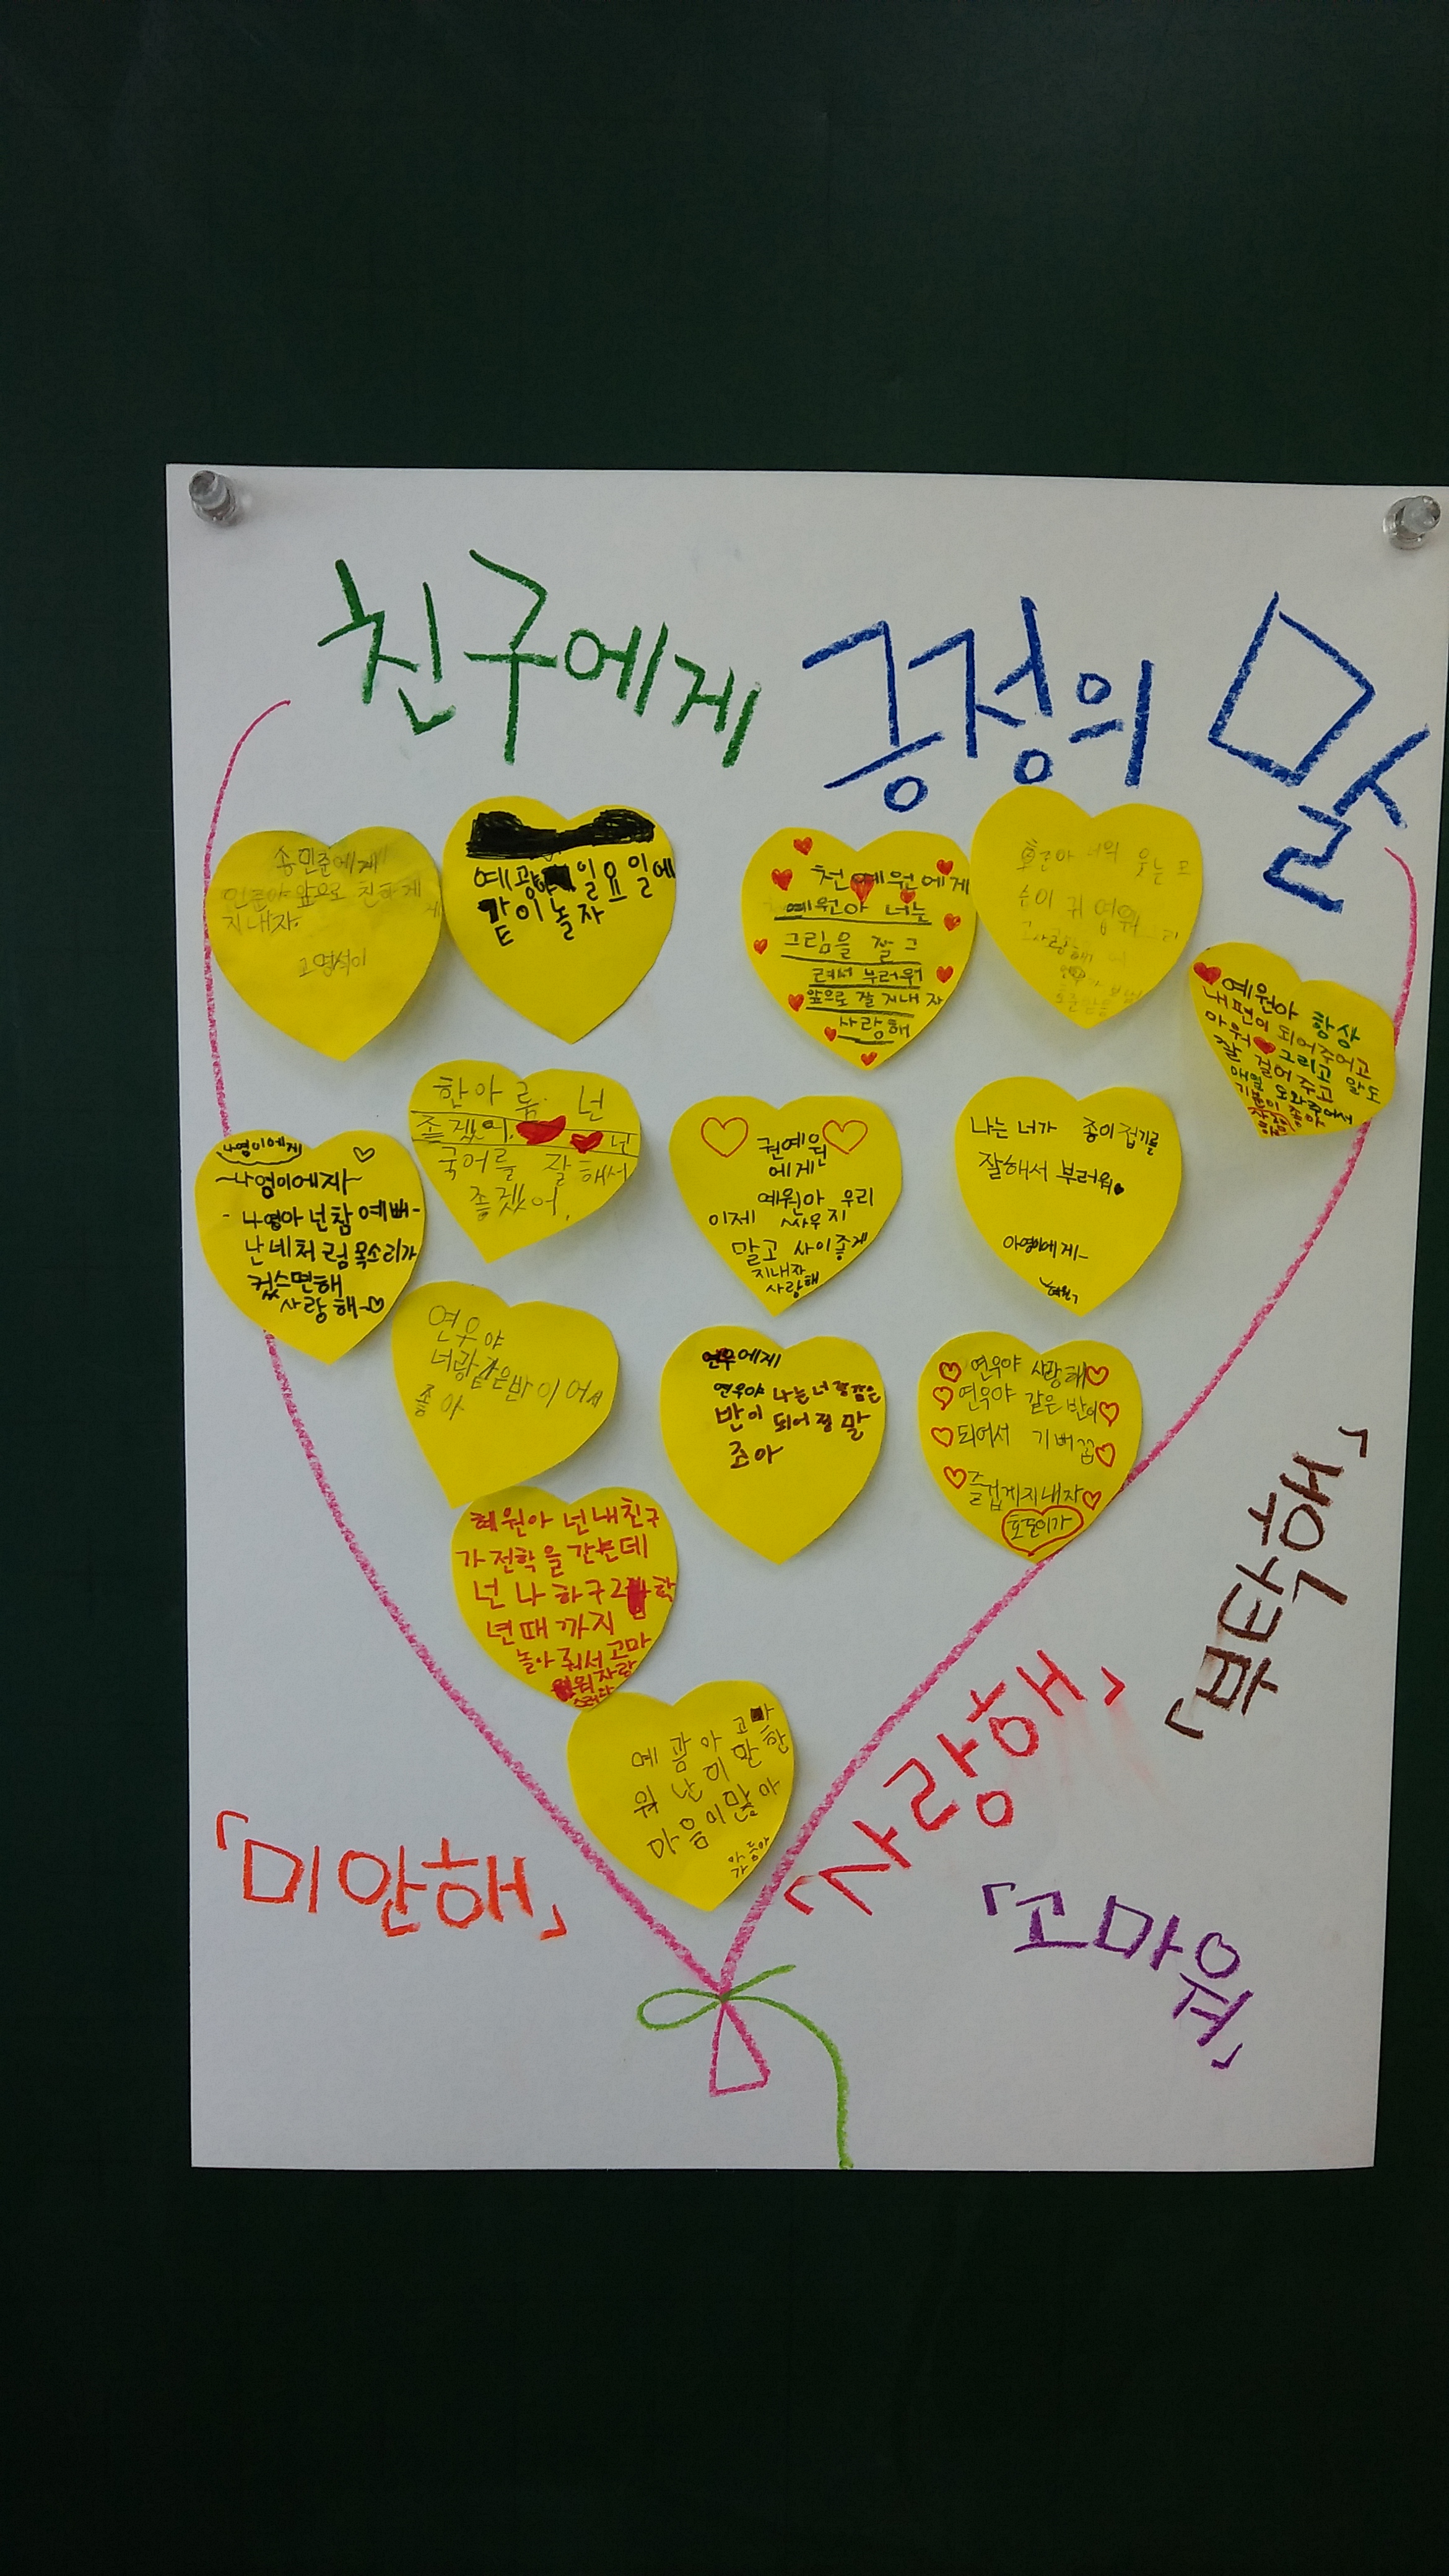 친구에게 긍정의 말
송민준에게
앞으로 친하게
지내자.
고영석이
예광아 일요일에
같이 놀자
천예원에게
예원아 너는
그림을 잘 그
려서 부러워
앞으로 잘 지내자
사랑해
너의 웃는 모
습이 귀여워 그리
고 사랑해
예원아 항상
내편이 되어주어고
마워 그리고 말도
잘 걸어주고
매일 도와주어서
나영이에게
~나영이에자~
- 나영아 넌참 예뻐-
난 네처럼 목소리가
컸스면해
사랑해~
한아름 넌
좋겠어. 넌
국어를 잘해서
좋겠어.
권예원
에게
예원아 우리
이제 싸우지
말고 사이좋게
지내자
사랑해
나는 너가 종이접기를
잘해서 부러워
아영이에게-
연우야
너랑 같은반이어서
좋아
연우에게
연우야 나는너랑같은
반이 되어정말
조아
연우야 사랑해
연우야 같은 반이
되어서 기뻐꼽
즐겁게지내자
혜원아 넌내친구
가 전학을 간는데
넌 나하구2학
년때까지
놀아줘서고마
워
예광아 고마
워 난 이만한
마음이많아
「해우크뿜」
「사랑해」
「미안해」
「고마워」